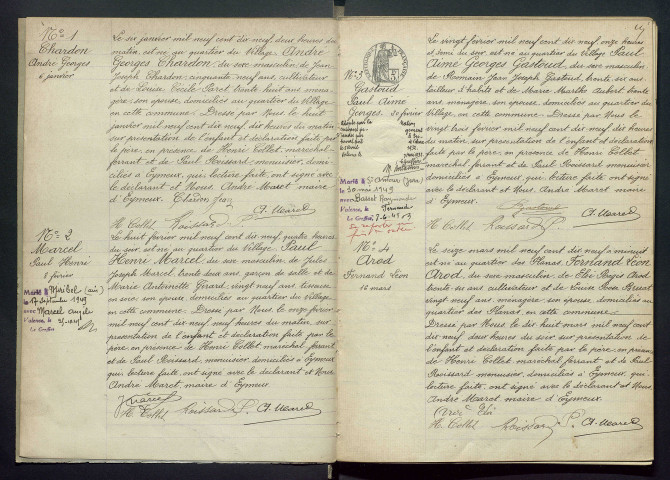 No 1
Chardon
André Georges
6 janvier
Le six janvier mil neuf cent dix neuf, deux heures du
matin, est né au quartier du Village André
Georges Chardon, du sexe masculin de Jean
Joseph Chardon, cinquante neuf ans, cultivateur
et de Louise Cécile Paret trente huit ans ména
gère, son épouse, domiciliés au quartier du Village
en cette commune. Dressé par Nous le huit
janvier mil neuf cent dix neuf dix heures du matin
sur présentation de l'enfant et déclaration faite par
le père, en présence de Henri Collet, maréchal-
ferrant et de Paul Roissard menuisier, domi-
ciliés à Eymeux, qui lecture faite, ont signé avec
le déclarant et Nous André Maret maire
d'Eymeux.
H. Collet Roissard P. A. Maret
No 2
Marcel
Paul Henri
8 février
Marié à Miribel (ain)
le 17 septembre 1949
avec Marcel
Valence, le
Le Greffier
Le huit février mil neuf cent dix neuf quatre heures
du soir, est né au quartier du Village Paul
Henri Marcel, du sexe masculin de Jules
Joseph Marcel, trente deux ans, garçon de salle et de
Marie Antoinette Girard, vingt neuf ans
son épouse, domiciliés au quartier du Village
en cette commune. Dressé par Nous le onze février
mil neuf cent dix neuf, neuf heures du matin, sur
présentation de l'enfant et déclaration faite par le
père en présence de Henri Collet maréchal ferrant
et de Paul Roissard, menuisier, domiciliés à Eymeux
qui lecture faite, ont signé avec le déclarant et Nous
André Maret, maire d'Eymeux.
H. Collet Roissard P. A. Maret
No 3
Gastoud
Paul Aimé
Georges. 20 février
Marié à St Amour (Jura)
le 30 mai 1949
avec
Valence, le
Le Greffier
Le vingt février mil neuf cent dix neuf, onze heures
et demi du soir, est né au quartier du Village Paul
Aimé Georges Gastoud, du sexe masculin
de Romain Jean Joseph Gastoud, trente six ans
tailleur d'habits et de Marie Marthe Aubert trente
ans, ménagère son épouse, domiciliés au quartier du
Village, en cette commune. Dressé par Nous le
vingt trois février mil neuf cent dix neuf dix heures
du matin, sur présentation de l'enfant et déclaration
faite par le père, en présence de Henri Collet,
maréchal ferrant et de Paul Roissard menuisier
domiciliés à Eymeux, qui lecture faite, ont signé
avec le déclarant et Nous André Maret maire
d'Eymeux.
Gastoud
H. Collet Roissard P. A. Maret
No 4
Arod
Fernand Léon
16 mars
Le seize mars mil neuf cent dix neuf à minuit
est né au quartier des Planas Fernand Léon
Arod, du sexe masculin, de Elie Régis Arod
trente six ans, cultivateur et de Louise
vingt neuf ans, ménagère son épouse, domiciliés au
quartier des Planas en cette commune.
Dressé par Nous le dix huit mars mil neuf cent dix
neuf, deux heures du soir sur présentation de l'enfant
et déclaration faite par le père, en présence
de Henri Collet, maréchal ferrant et de Paul
Roissard menuisier, domiciliés à Eymeux, qui
lecture faite, ont signé avec le déclarant et Nous
André Maret maire d'Eymeux.
H. Collet Roissard P. A. Maret